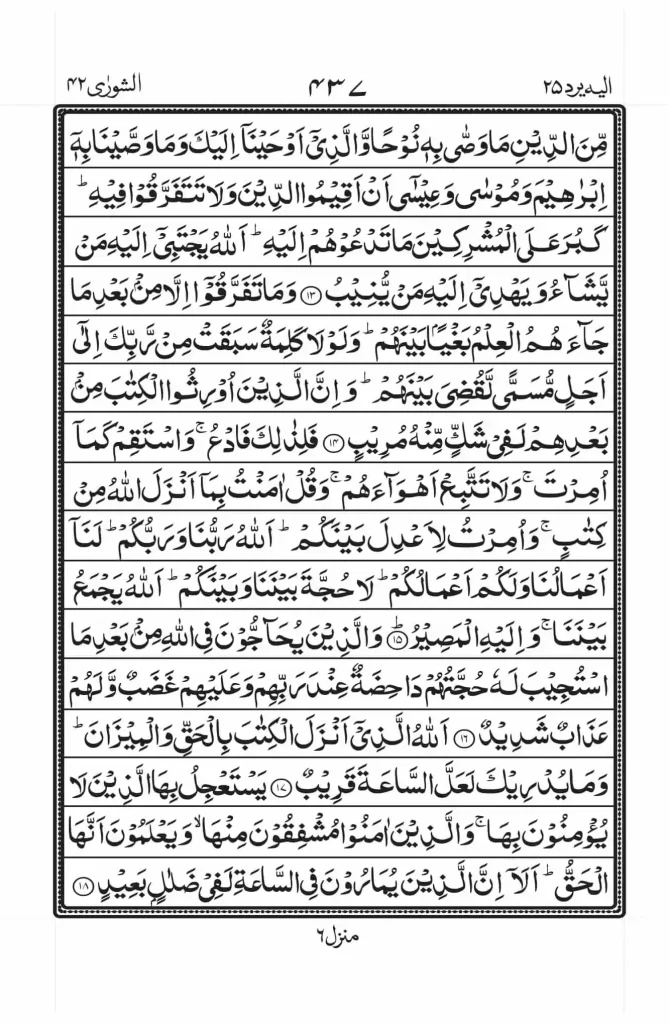 الیہ یرد ۲۵
۴۳۷
الشورٰی ۴۲
مِّنَ الدِّيْنِ مَا وَصّٰى بِهٖ نُوْحًا وَّالَّذِيْٓ اَوْحَيْنَآ اِلَيْكَ وَمَا وَصَّيْنَا بِهٖٓ
اِبْرٰهِيْمَ وَمُوْسٰى وَعِيْسٰٓى اَنْ اَقِيْمُوا الدِّيْنَ وَلَا تَتَفَرَّقُوْا فِيْهِ ؕ
كَبُرَ عَلَى الْمُشْرِكِيْنَ مَا تَدْعُوْهُمْ اِلَيْهِ ؕ اَللّٰهُ يَجْتَبِيْٓ اِلَيْهِ مَنْ
يَّشَآءُ وَيَهْدِيْٓ اِلَيْهِ مَنْ يُّنِيْبُ ۝۱۳ وَمَا تَفَرَّقُوْٓا اِلَّا مِنْۢ بَعْدِ مَا
جَآءَهُمُ الْعِلْمُ بَغْيًۢا بَيْنَهُمْ ؕ وَلَوْلَا كَلِمَةٌ سَبَقَتْ مِنْ رَّبِّكَ اِلٰٓى
اَجَلٍ مُّسَمًّى لَّقُضِيَ بَيْنَهُمْ ؕ وَاِنَّ الَّذِيْنَ اُوْرِثُوا الْكِتٰبَ مِنْۢ
بَعْدِهِمْ لَفِيْ شَكٍّ مِّنْهُ مُرِيْبٍ ۝۱۴ فَلِذٰلِكَ فَادْعُ ۚ وَاسْتَقِمْ كَمَآ
اُمِرْتَ ۚ وَلَا تَتَّبِعْ اَهْوَآءَهُمْ ۚ وَقُلْ اٰمَنْتُ بِمَآ اَنْزَلَ اللّٰهُ مِنْ
كِتٰبٍ ۚ وَاُمِرْتُ لِاَعْدِلَ بَيْنَكُمْ ؕ اَللّٰهُ رَبُّنَا وَرَبُّكُمْ ؕ لَنَآ
اَعْمَالُنَا وَلَكُمْ اَعْمَالُكُمْ ؕ لَا حُجَّةَ بَيْنَنَا وَبَيْنَكُمْ ؕ اَللّٰهُ يَجْمَعُ
بَيْنَنَا ۚ وَاِلَيْهِ الْمَصِيْرُ ؕ۝۱۵ وَالَّذِيْنَ يُحَآجُّوْنَ فِي اللّٰهِ مِنْۢ بَعْدِ مَا
اسْتُجِيْبَ لَهٗ حُجَّتُهُمْ دَاحِضَةٌ عِنْدَ رَبِّهِمْ وَعَلَيْهِمْ غَضَبٌ وَّلَهُمْ
عَذَابٌ شَدِيْدٌ ۝۱۶ اَللّٰهُ الَّذِيْٓ اَنْزَلَ الْكِتٰبَ بِالْحَقِّ وَالْمِيْزَانَ ؕ
وَمَا يُدْرِيْكَ لَعَلَّ السَّاعَةَ قَرِيْبٌ ۝۱۷ يَسْتَعْجِلُ بِهَا الَّذِيْنَ لَا
يُؤْمِنُوْنَ بِهَا ۚ وَالَّذِيْنَ اٰمَنُوْا مُشْفِقُوْنَ مِنْهَا ۙ وَيَعْلَمُوْنَ اَنَّهَا
الْحَقُّ ؕ اَلَآ اِنَّ الَّذِيْنَ يُمَارُوْنَ فِي السَّاعَةِ لَفِيْ ضَلٰلٍۢ بَعِيْدٍ ۝۱۸
منزل ۶